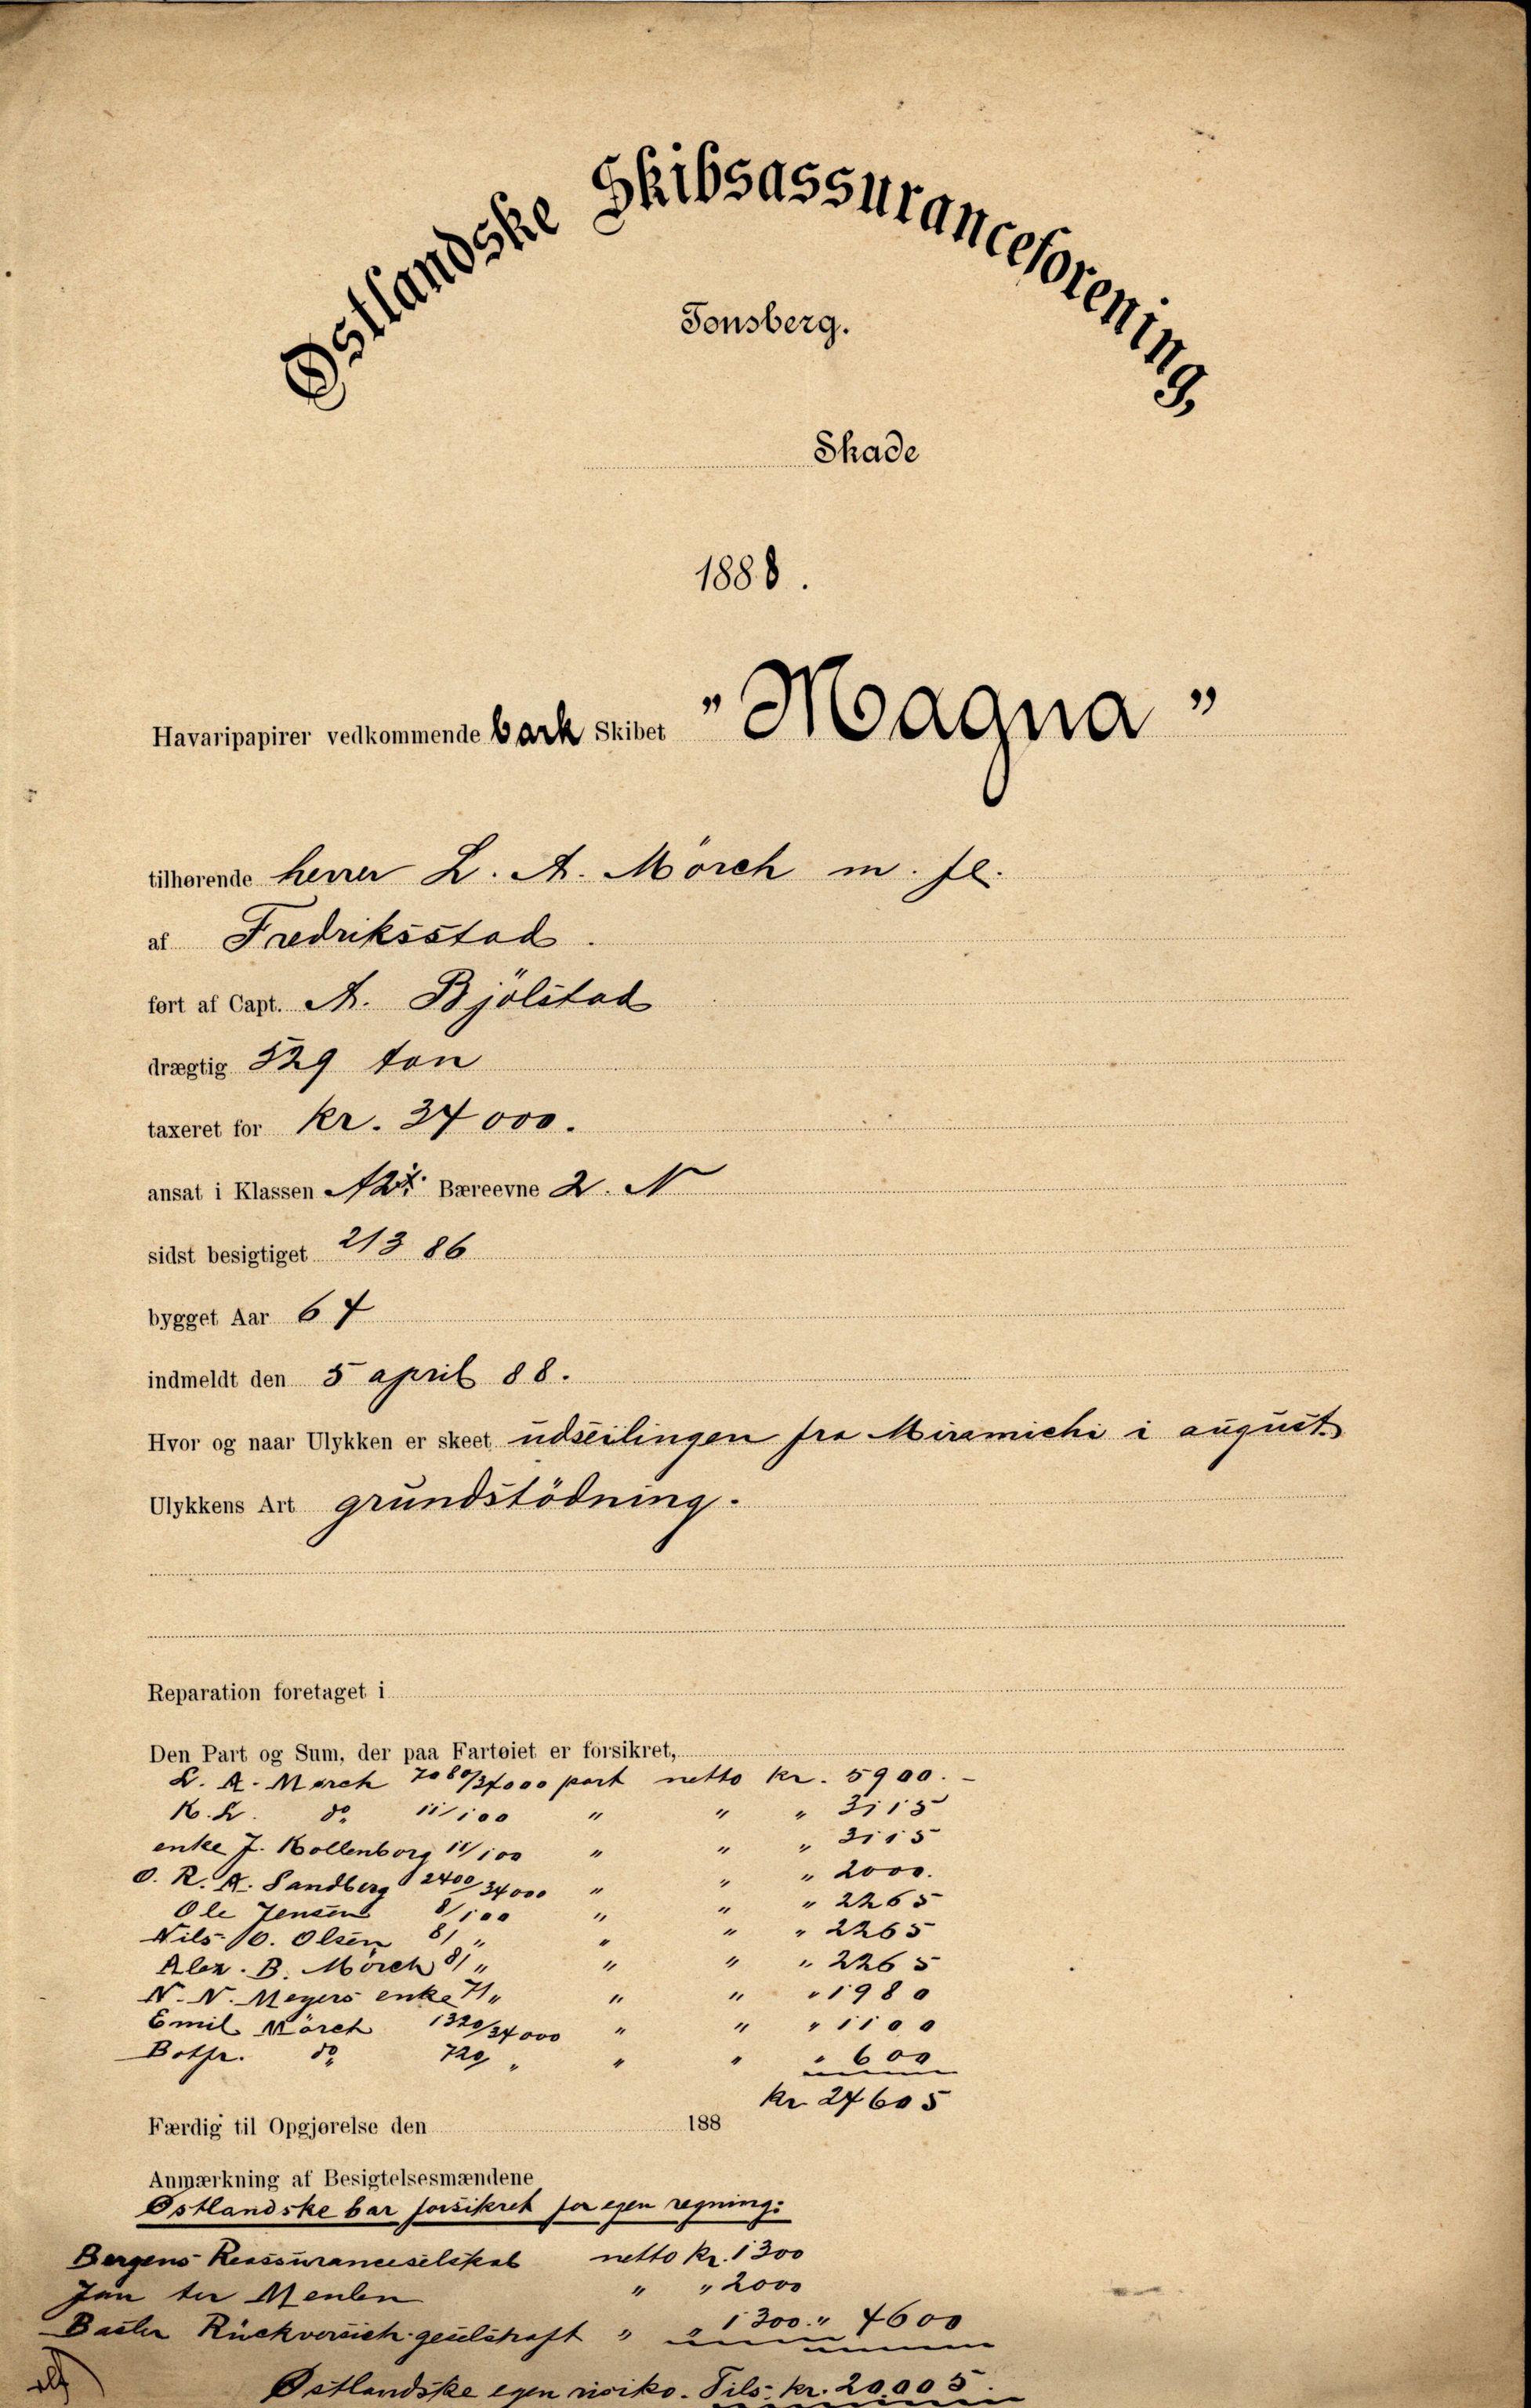 Østlandske Skibsassuranceforening,
Tønsberg.
Skade
1888.
Havaripapirer vedkommende bark Skibet "Magna"
tilhørende herrer L. A. Mörch m. fl.
af Fredriksstad.
ført af Capt. A. Bjölstad
drægtig 529 ton
taxeret for kr. 34000.
ansat i Klassen A2 Bæreevne 2. N
sidst besigtiget 213 86
bygget Aar 67
indmeldt den 5 april 88.
Hvor og naar Ulykken er skeet udseilingen fra Miramichi i august
Ulykkens Art grundstödning.
Reparation foretaget i
Den Part og Sum, der paa Fartøiet er forsikret,
L. A. Mørch 7080/34000 part netto kr. 5900.-
K. L. do 11/100 " " " 3115
enke J. Kollenborg 11/100 " " " 3115
O. R. A. Sandberg 2400/34000 " " " 2000.
Ole Jensen 8/100 " " " 2265
Nils O. Olsen 8/" " " " 2265
Alex. B. Mörch 8/" " " " 2265
N. N. Meyers enke 7/" " " " 1980
Emil Mörch 1320/34000 " " " 1100
Bothr. do 720 " " " " 600
kr 24605
Færdig til Opgjørelse den 188
Anmærkning af Besigtelsesmændene
Østlandske har forsikret for egen regning:
Bergens Reassuranceselskab netto kr. 1300
Jan ter Meulen " " 2000
Basler Rückversich. gesellschaft " " 1300. " 4600
Østlandske egen risiko. Tils. kr. 20.005.